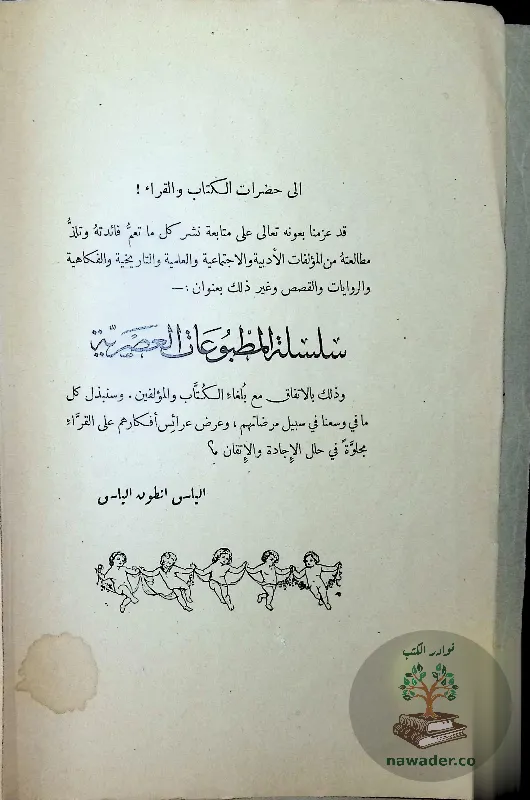 الى حضرات الكتاب والقراء !
قد عزمنا بعونه تعالى على متابعة نشر كل ما تعمُّ فائدتهُ وتلذُّ
مطالعتهُ من المؤلفات الأدبية والاجتماعية والعلمية والتاريخية والفكاهية
والروايات والقصص وغير ذلك بعنوان :—
سلسلة المطبوعات العصرية
وذلك بالاتفاق مع بلغاء الكُتَّاب والمؤلفين . وسنبذل كل
ما في وسعنا في سبيل مرضاتهم ، وعرض عرائس أفكارهم على القرَّاء
مجلوَّةً في حلل الإجادة والإتقان م؟
الياس انطون الياس
نوادر الكتب
nawader.co